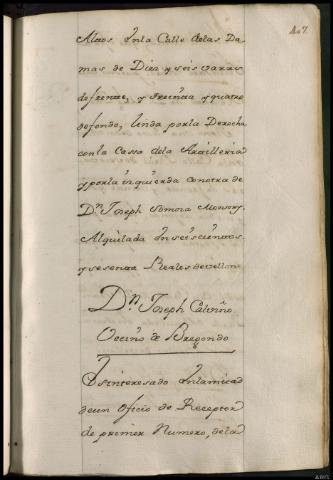 47
Altos Inla Calle delas Da
mas de Diez y seis varas
defrente, y treinta y quatro
defondo, linda porla Derecha
conla Cassa dela Artilleria
y porla izquierda conotra de
Dn. Joseph Somoza Monsory.
Alquilada En seiscientos
y sesenta Reales devellon
Dn. Joseph Catiño
Vecino de Bregondo
Esinteresado Enlamitad
deun Oficio de Receptor
de primer Numero, dela